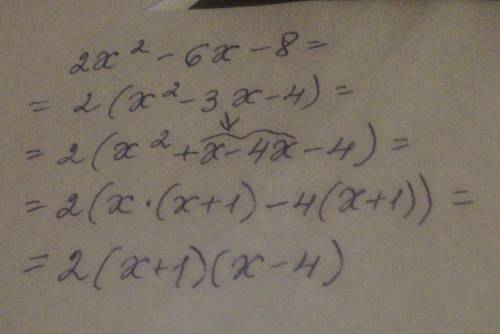 2x² - 6x - 8 =
= 2(x² - 3x - 4) =
= 2(x² + x - 4x - 4) =
= 2(x·(x+1) - 4(x+1)) =
= 2(x+1)(x-4)